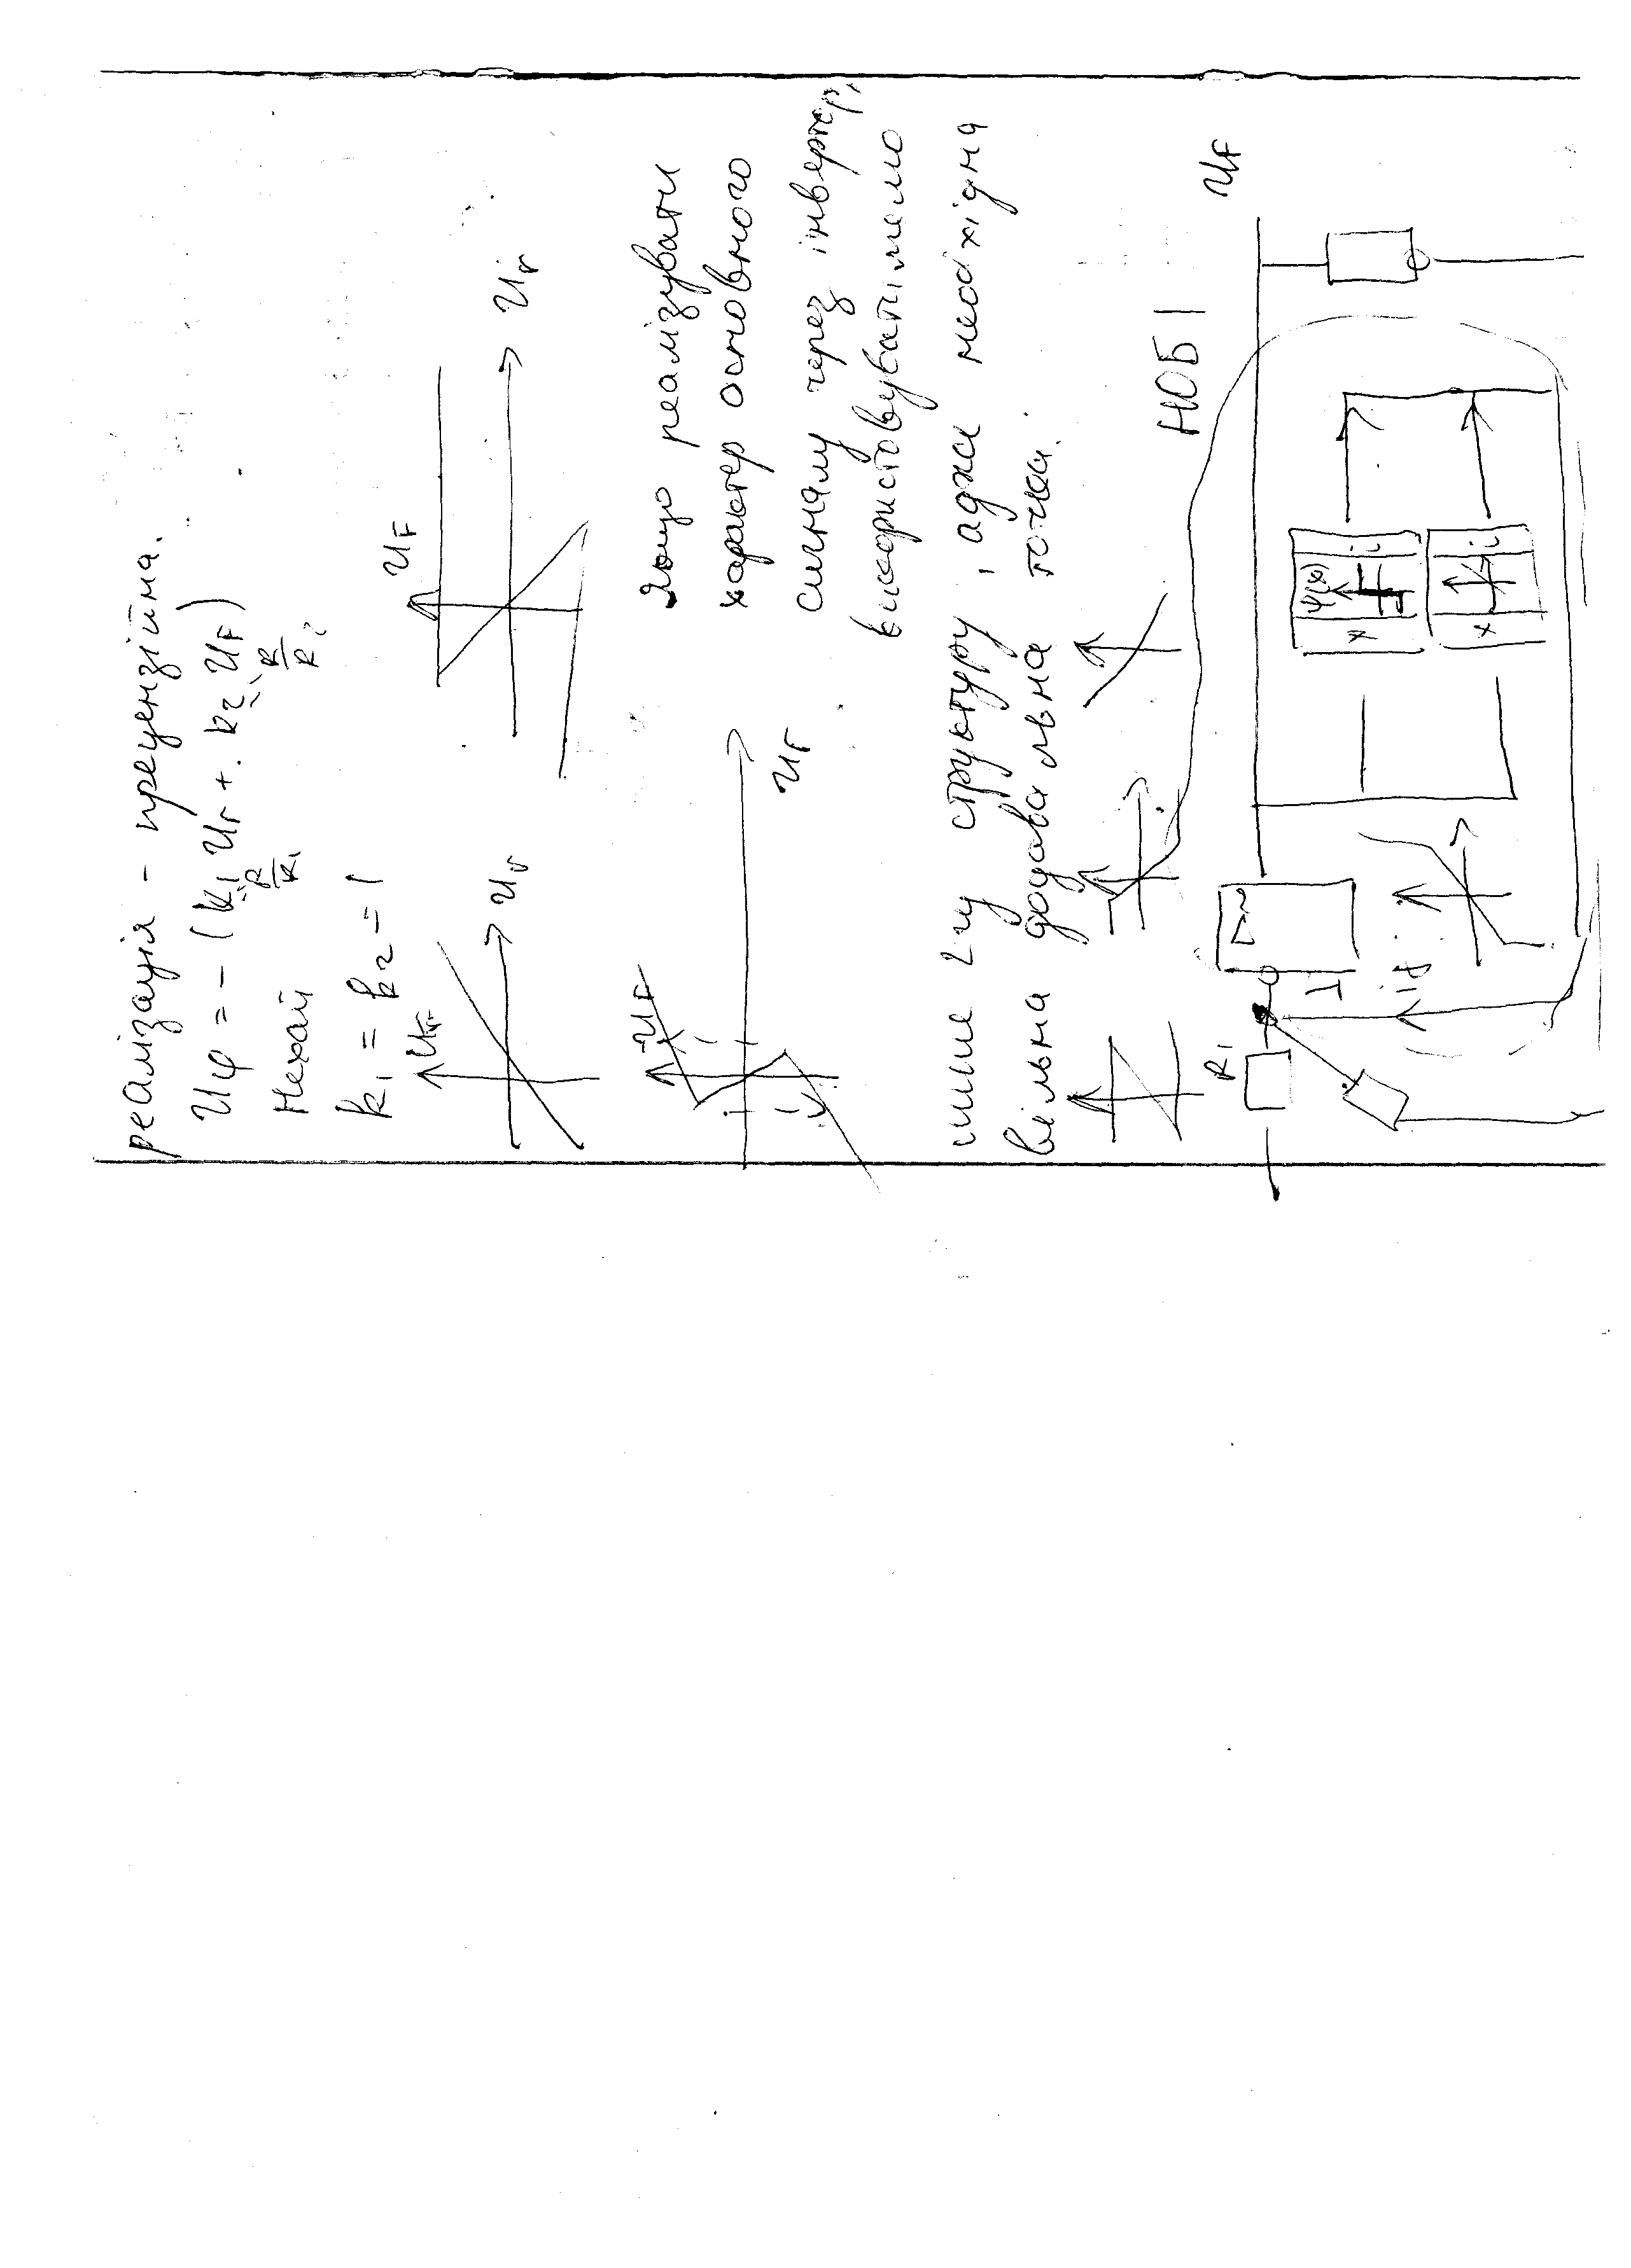 реалізація – прецензійна.
Uφ = – (k₁ Ur + k₂ UF)
R/R₁ R/R₂
Нехай
k₁ = k₂ = 1
Ur
UF
Ur
Якщо реалізувати
характер основного
сигналу через інвертор,
використовуватимемо
-UF
Ur
лише 2-гу структуру, адже необхідна
вільна додавальна точка.
НОБ 1
UF
R₁
▷∞
x ψ(x) i
x i